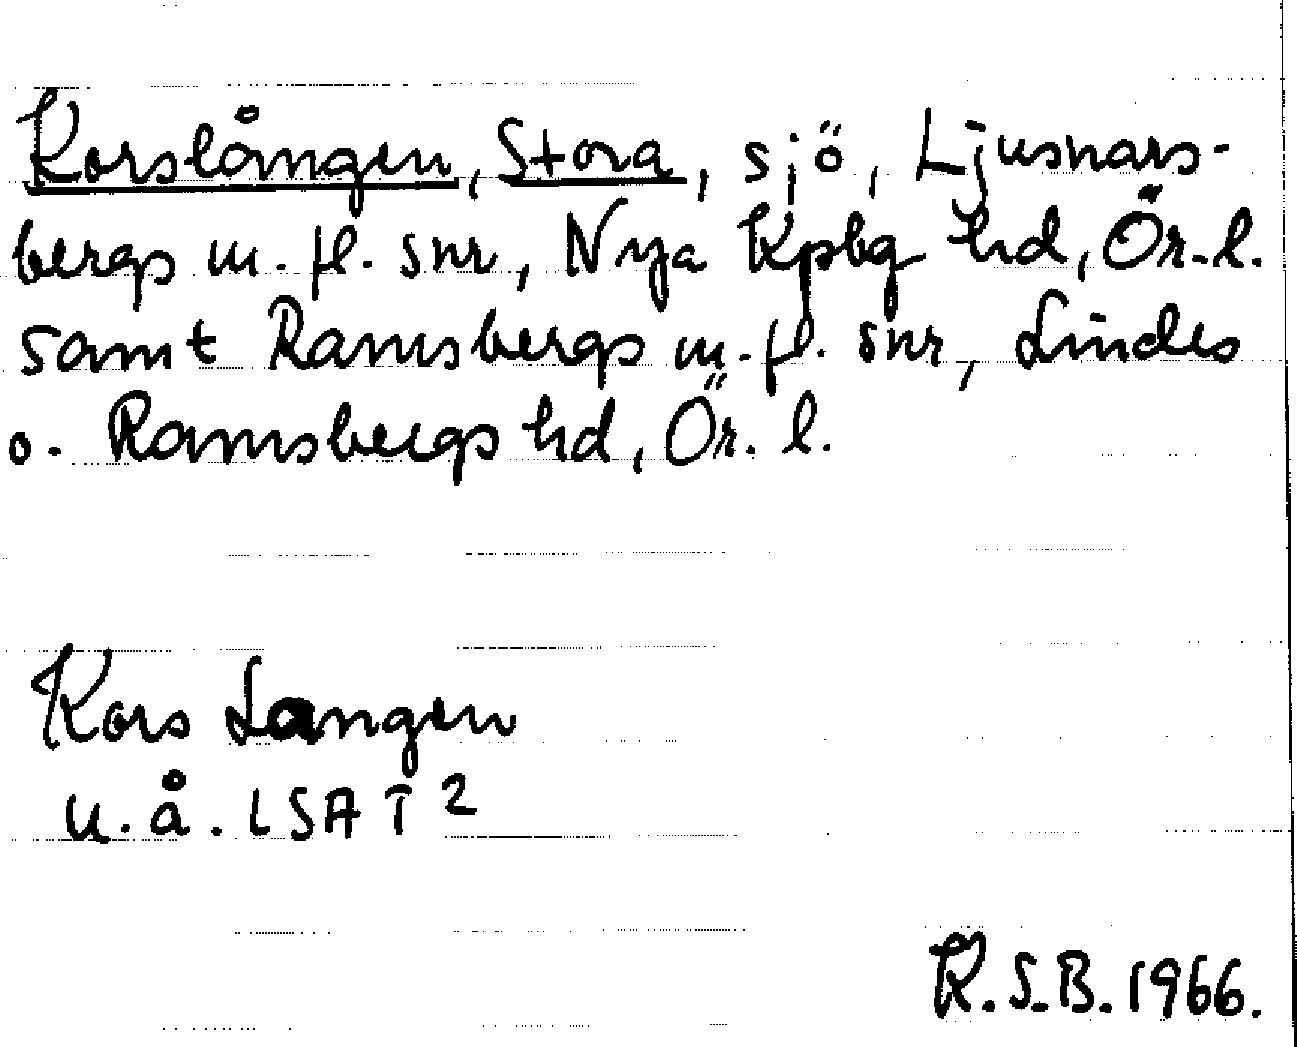 Korslången, Stora, sjö, Ljusnars-
bergs m. fl. snr, Nya Kpbg hd, Ör. l.
samt Ramsbergs m. fl. snr, Lindes
o. Ramsbergs hd, Ör. l.
Kors Langen
u. å. LSA T 2
K.S.B. 1966.